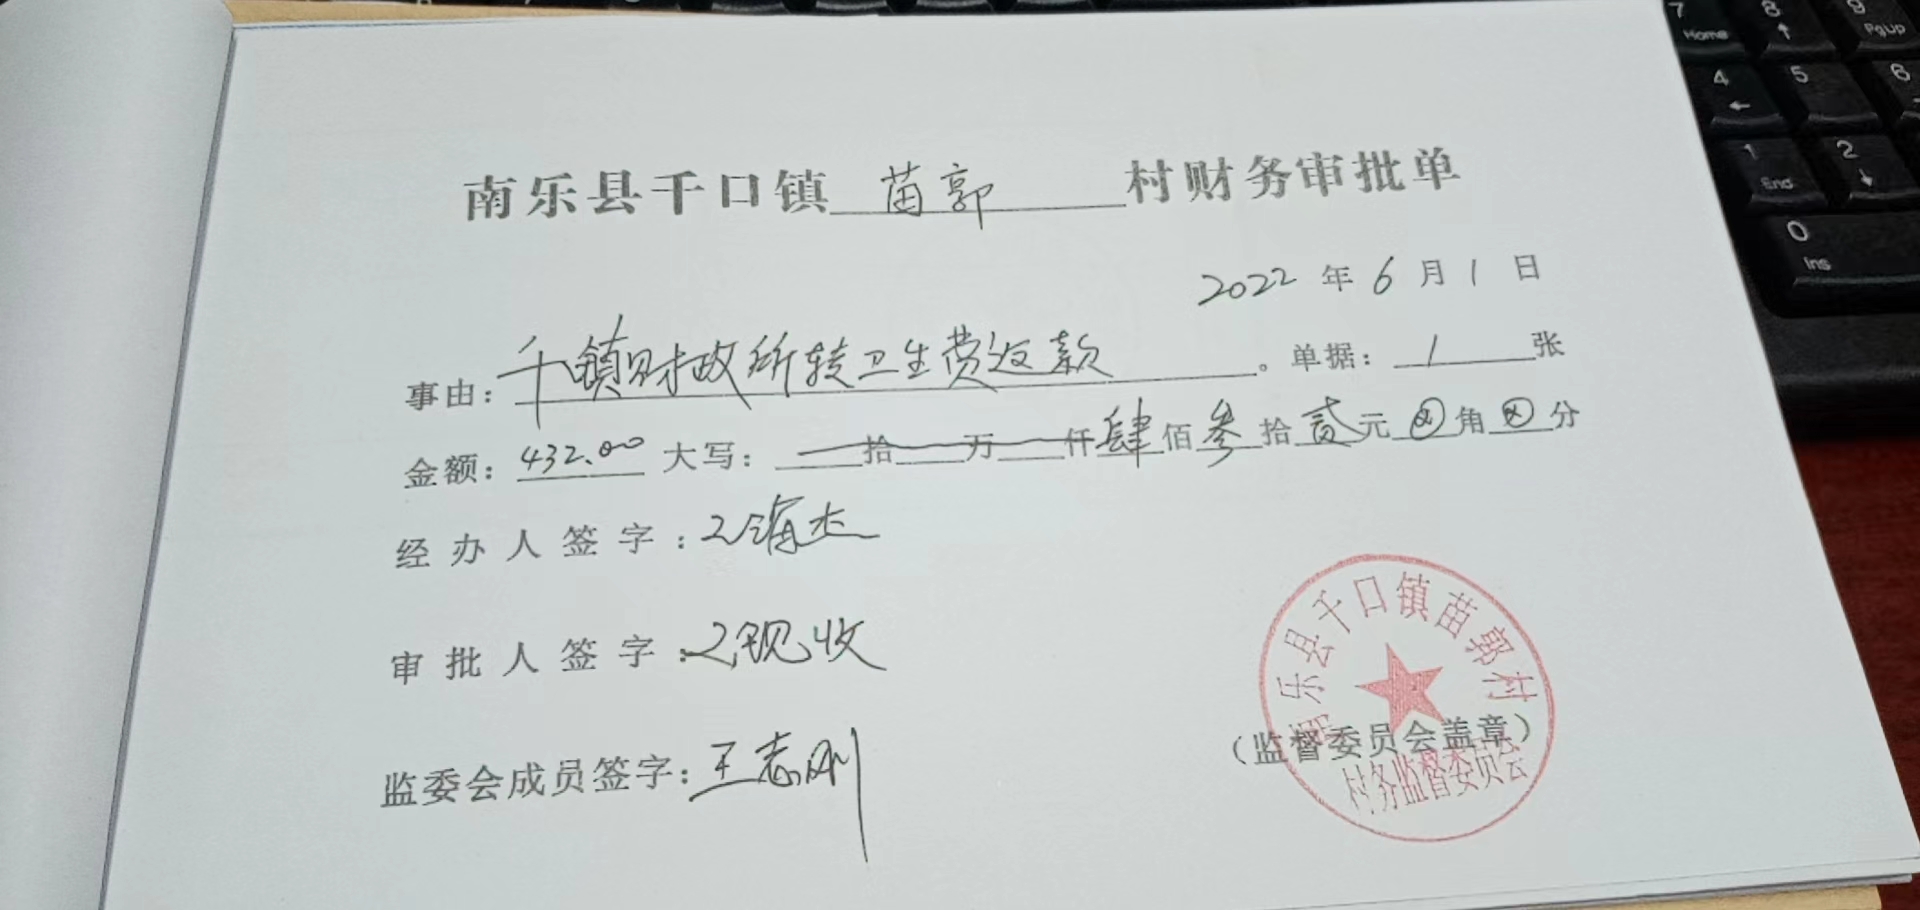 南乐县千口镇 苗郭 村财务审批单
2022 年 6 月 1 日
事由：千镇财政所转卫生费返款。单据：1张
金额：432.00 大写：拾万仟肆佰叁拾贰元⊗角⊗分
经办人签字：海杰
审批人签字：收
监委会成员签字：王志刚
（监督委员会盖章）
南乐县千口镇苗郭村
村务监督委员会
7 Home
8
9 PgUp
4
5
6
1 End
2
0 Ins